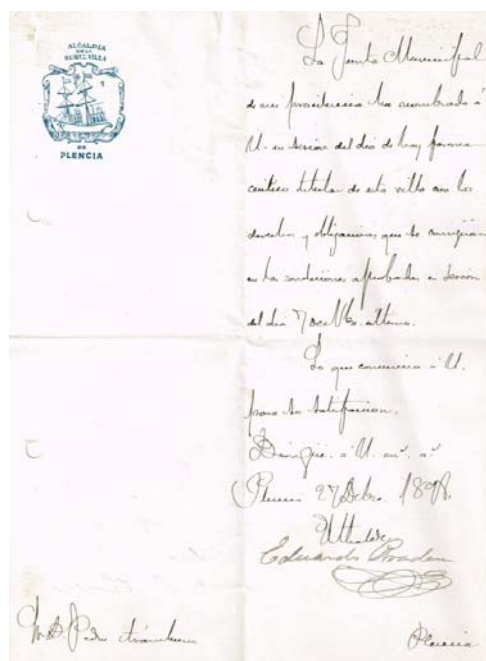 ALCALDIA
DE LA
NOBLE VILLA
DE
PLENCIA
La Junta Municipal
de mi presidencia ha nombrado á
U. en sesion del dia de hoy farma
céutico titular de esta villa con los
derechos y obligaciones que se consignan
en las condiciones aprobadas en sesion
del dia 7
Lo que comunico á U.
para su satisfaccion.
Dios gue. á U. m.s a.s
Plencia 27 Dcbre. 1898.
El Alcalde
Eduardo
Sr. D. Pedro
Plencia